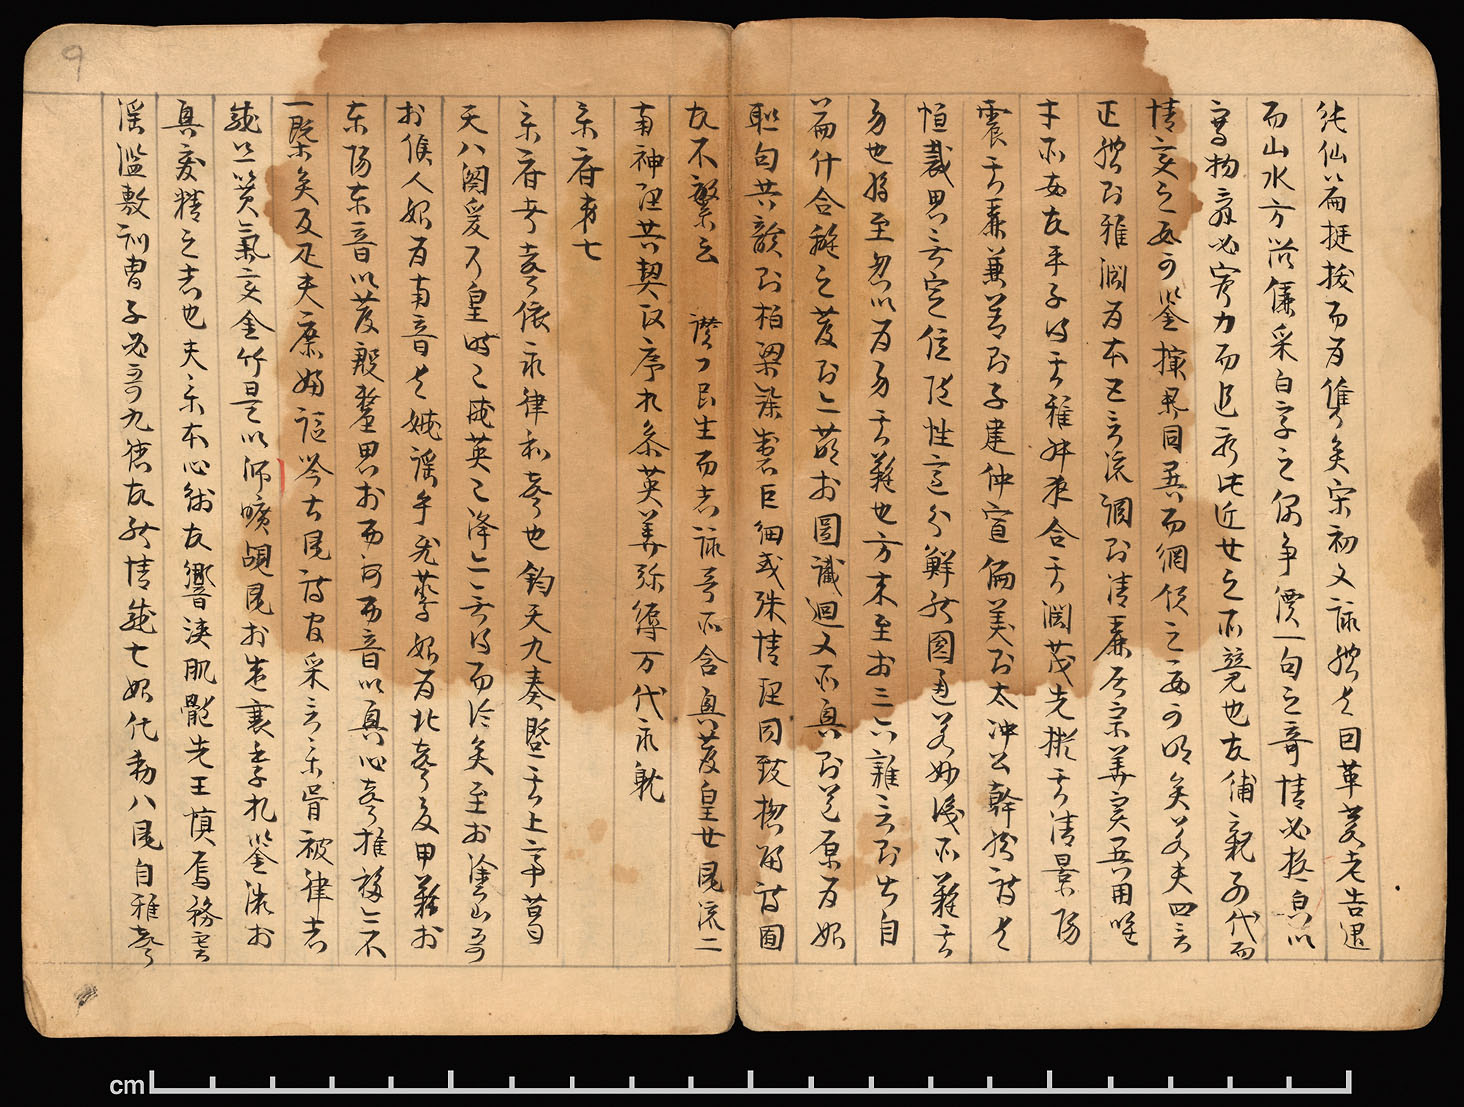 純仙篇挺拔而爲雋矣宋初文詠體有因革莊老告退
而山水方滋儷采百字之偶争價一句之奇情必極皃以
寫物辞必窮力而追新此近世之所競也故鋪觀列代而
情變之數可鍳撮舉同異而綱領之要可明矣若夫四言
正體則雅潤爲本五言流調則清麗居宗華實異用唯
才所安故平子得其雅叔夜含其潤茂先擬其清景陽
震其麗兼善則子建仲宣偏美則太冲公幹然詩有
恒裁思無定位随性適分鮮能圓通若妙識所難其
易也將至忽以爲易其難也方来至於三六雜言則出自
篇什合離之發則亦萌於圖讖迴文所興則道原爲始
聯句共韻則柏梁餘製巨細或殊情理同致揔歸詩囿
故不繁云　讚曰民生而志詠哥所含興發皇世風流二
南神理共契政序相条英華弥縟万代永躭
樂府第七
樂府者聲依永律和聲也鈞天九奏既其上帝葛
天八闋爰乃皇時自咸英已降亦無得而論矣至於塗山哥
於候人始爲南音有娀謡乎飛鷰始爲北聲夏甲歎於
東陽東音以發殷整思於西河西音以興心聲推移亦不
一槩矣及疋夫庶婦謳吟土風詩官采言樂胥被律志
感絲篁氣變金竹是以師曠覘風於盛衰季札鍳微於
興廢精之志也夫樂本心術故響浹肌髓先王慎焉務塞
滛濫敷訓胄子必哥九德故能情感七始化動八風自雅聲